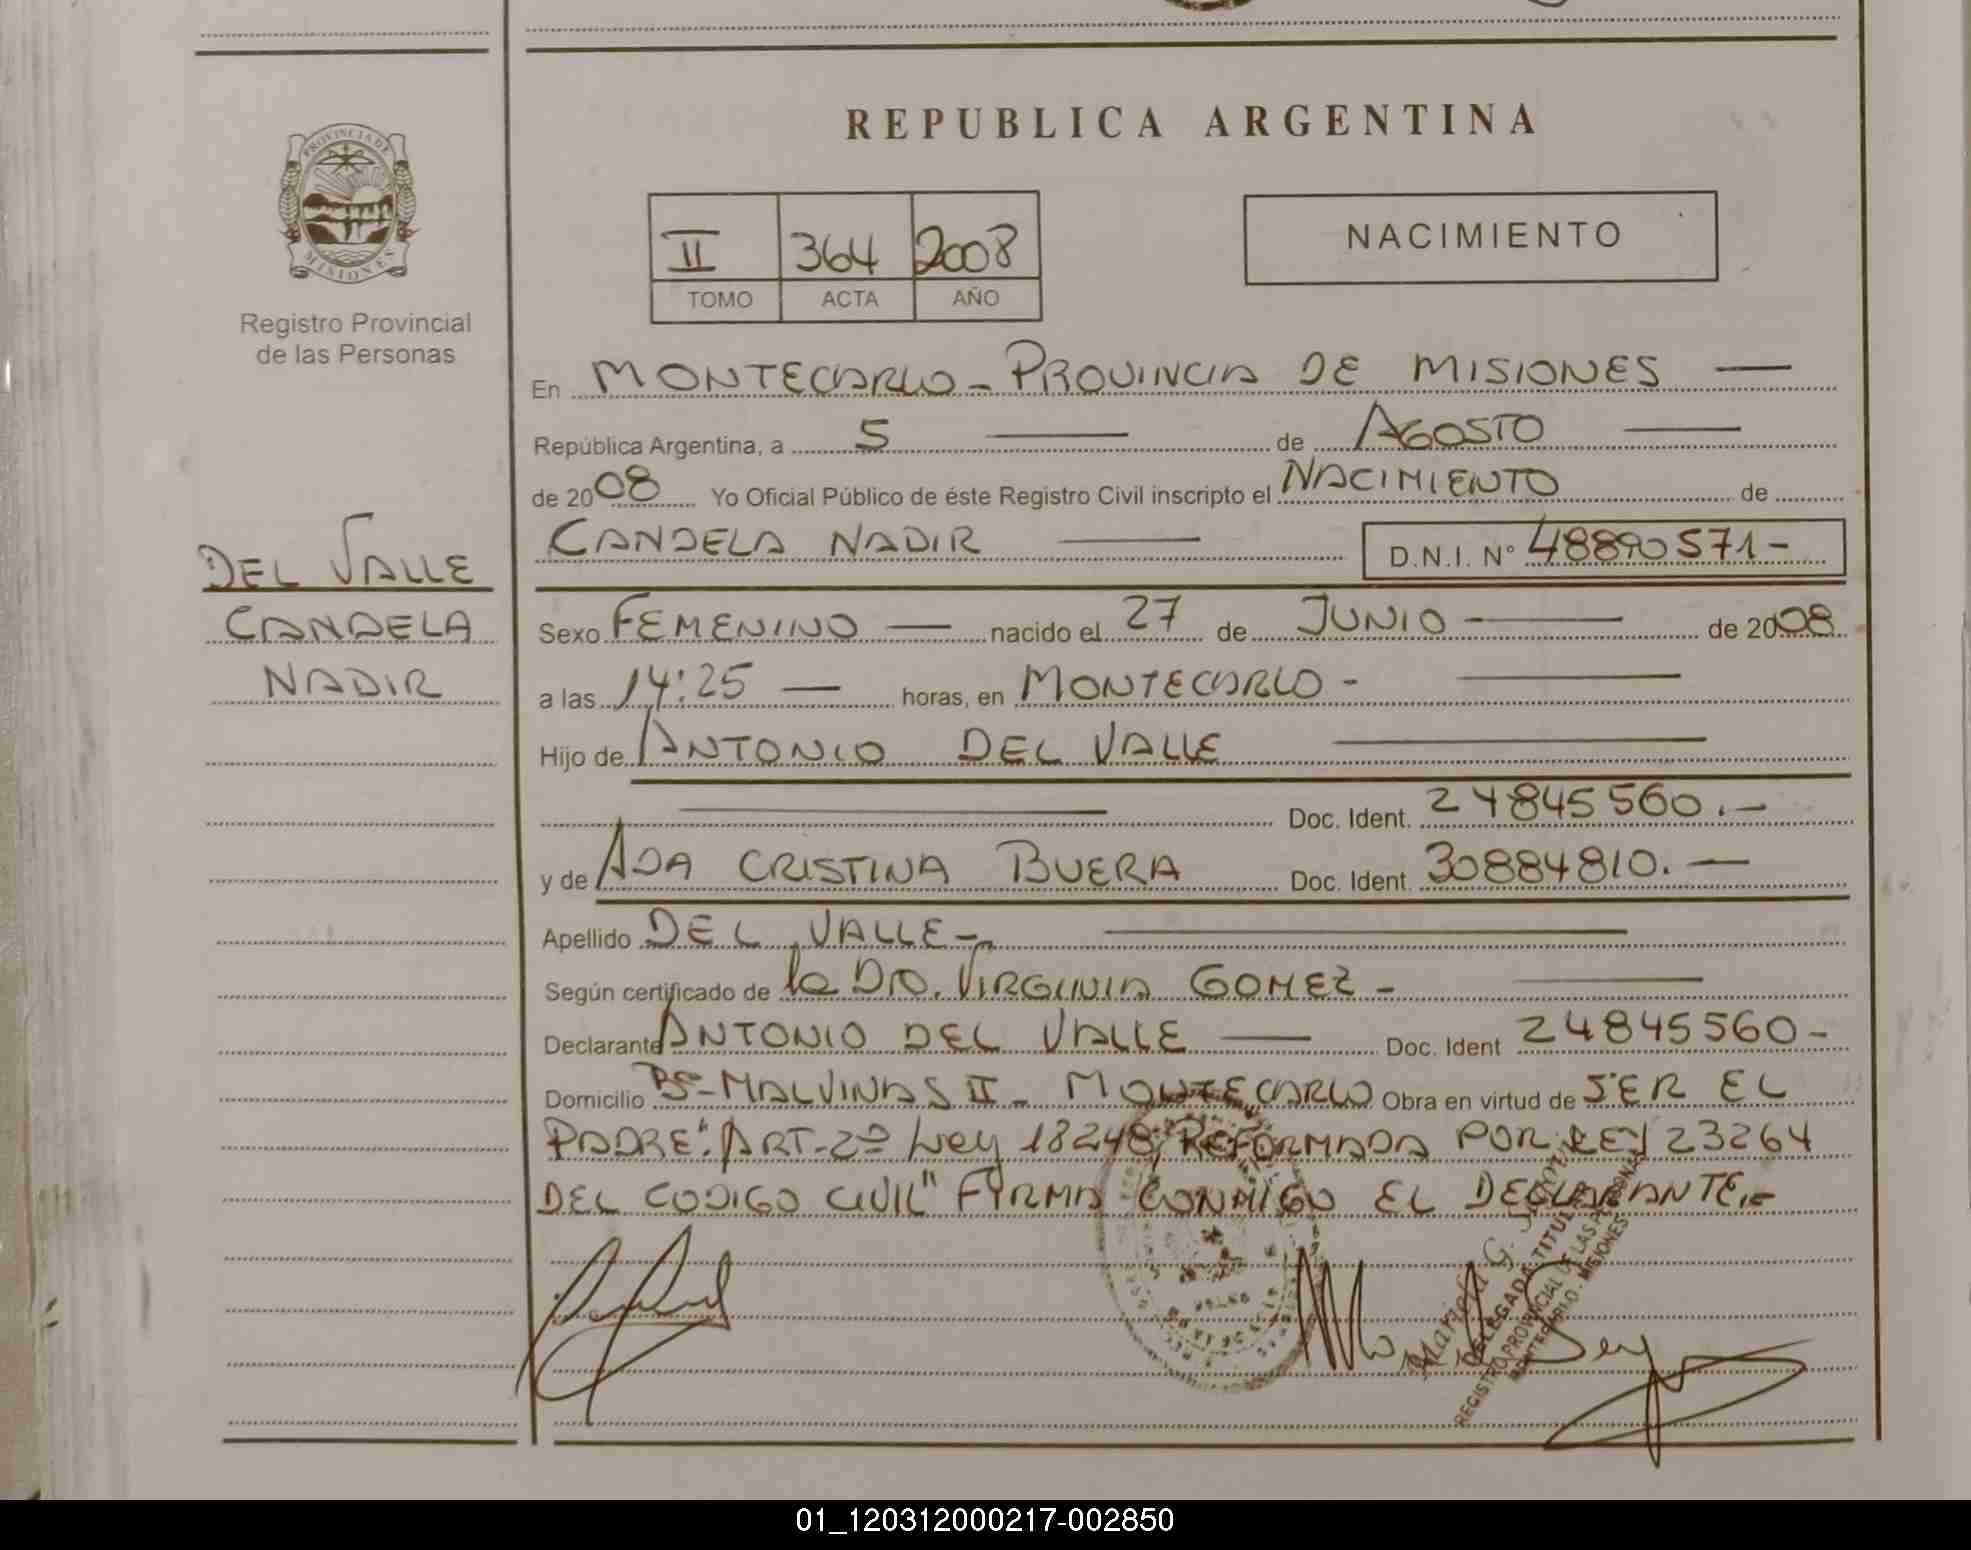 REPUBLICA ARGENTINA
PROVINCIA DE
MISIONES
Registro Provincial
de las Personas
II 364 2008
TOMO ACTA AÑO
NACIMIENTO
En MONTECARLO - PROVINCIA DE MISIONES —
República Argentina, a 5 — de AGOSTO —
de 2008 Yo Oficial Público de éste Registro Civil inscripto el NACIMIENTO de
CANDELA NADIR — D.N.I. N° 48890571-
DEL VALLE
CANDELA
NADIR
Sexo FEMENINO — nacido el 27 de JUNIO — de 2008
a las 14:25 — horas, en MONTECARLO - —
Hijo de ANTONIO DEL VALLE —
— Doc. Ident. 24845560.—
y de ADA CRISTINA BUERA Doc. Ident. 30884810.—
Apellido DEL VALLE- —
Según certificado de la Dra. VIRGINIA GOMEZ - —
Declarante ANTONIO DEL VALLE — Doc. Ident 24845560-
Domicilio Bº-MALVINAS II - MONTECARLO Obra en virtud de SER EL
PADRE". ART-2º Ley 18248, REFORMADA POR LEY 23264
DEL CODIGO CIVIL" FIRMA CONMIGO EL DECLARANTE.-
Mariela G.
DELEGADA TITULAR
REGISTRO PROVINCIAL DE LAS PERSONAS
MONTECARLO - MISIONES
01_120312000217-002850